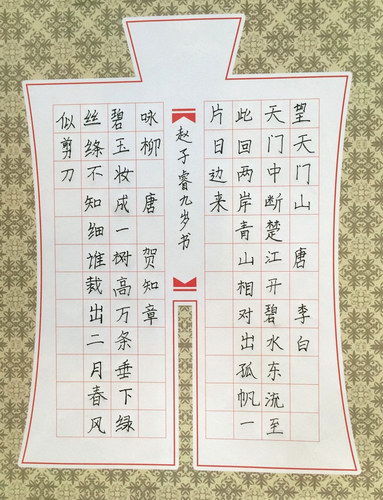 望天门山 唐 李白
天门中断楚江开碧水东流至
此回两岸青山相对出孤帆一
片日边来
赵子睿九岁书
咏柳 唐 贺知章
碧玉妆成一树高万条垂下绿
丝绦不知细谁裁出二月春风
似剪刀